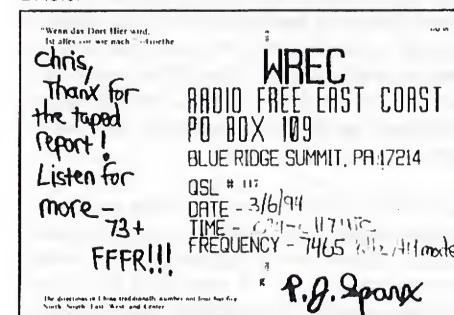 "Wenn das Dort Hier wird,
Ist alles vor wie nach" -Goethe
Chris,
Thanx for
the taped
report!
Listen for
more-
73+
FFFR!!!
WREC
RADIO FREE EAST COAST
PO BOX 109
BLUE RIDGE SUMMIT, PA 17214
QSL # 117
DATE - 3/6/94
TIME -
FREQUENCY - 7465 kHz/AM mode
P.J. Sparx
The directions in China traditionally number not four but five
North, South, East, West and Center